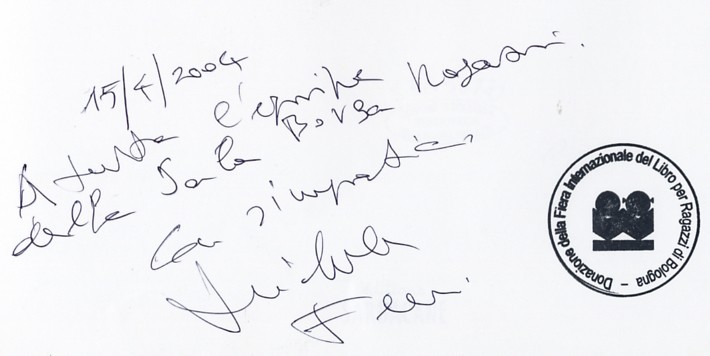 15/4/2004
A tutta l'equipe
della Sala Borsa Ragazzi.
Con simpatia,
Donazione della Fiera Internazionale del Libro per Ragazzi di Bologna –